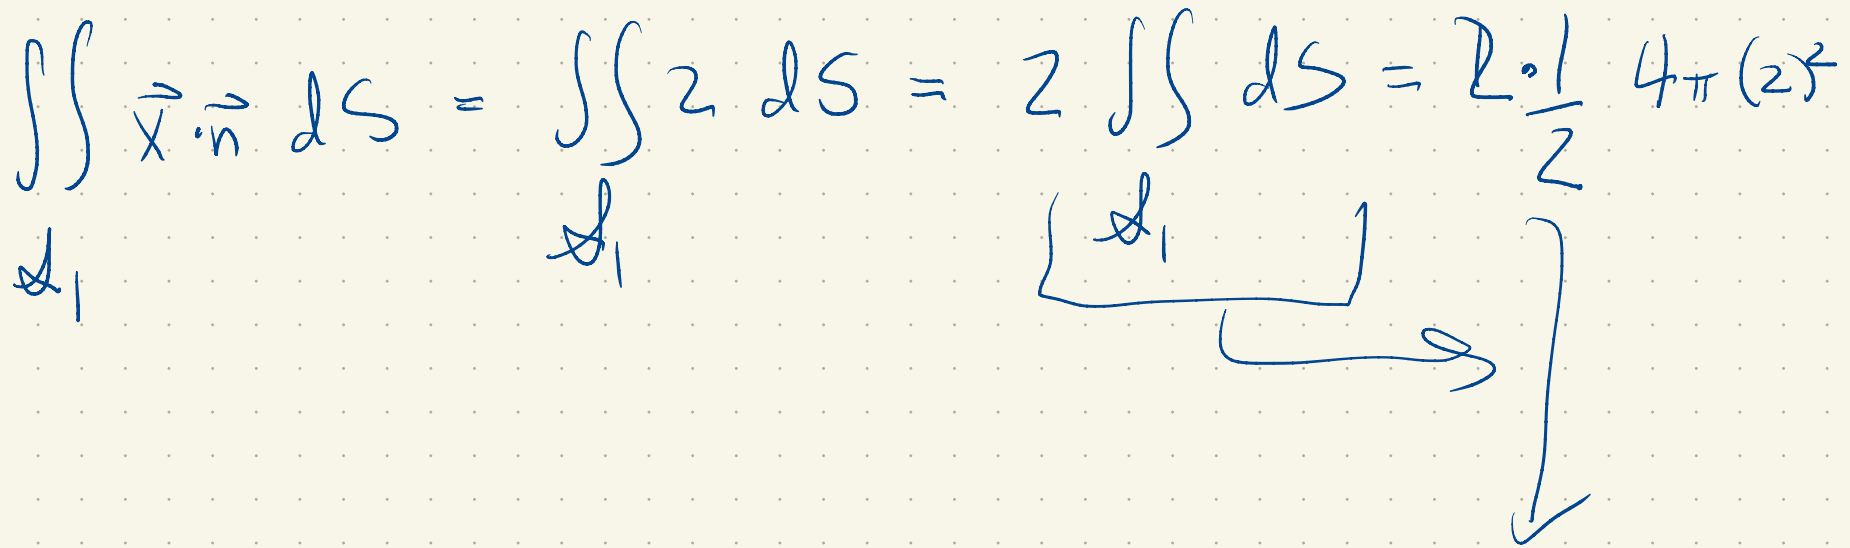 ∬_{S₁} x⃗·n⃗ dS = ∬_{S₁} 2 dS = 2 ∬_{S₁} dS = 2·1/2 4π(2)²